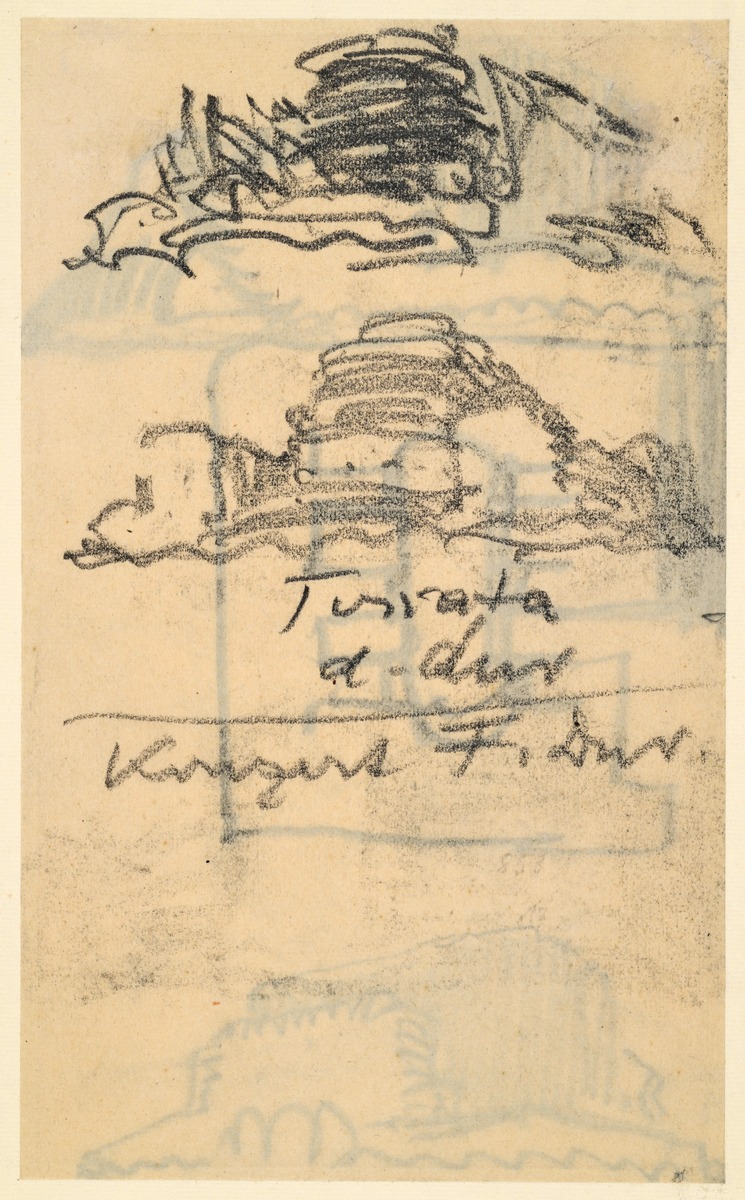 Toccata
d-dur
Konzert F. Dur.